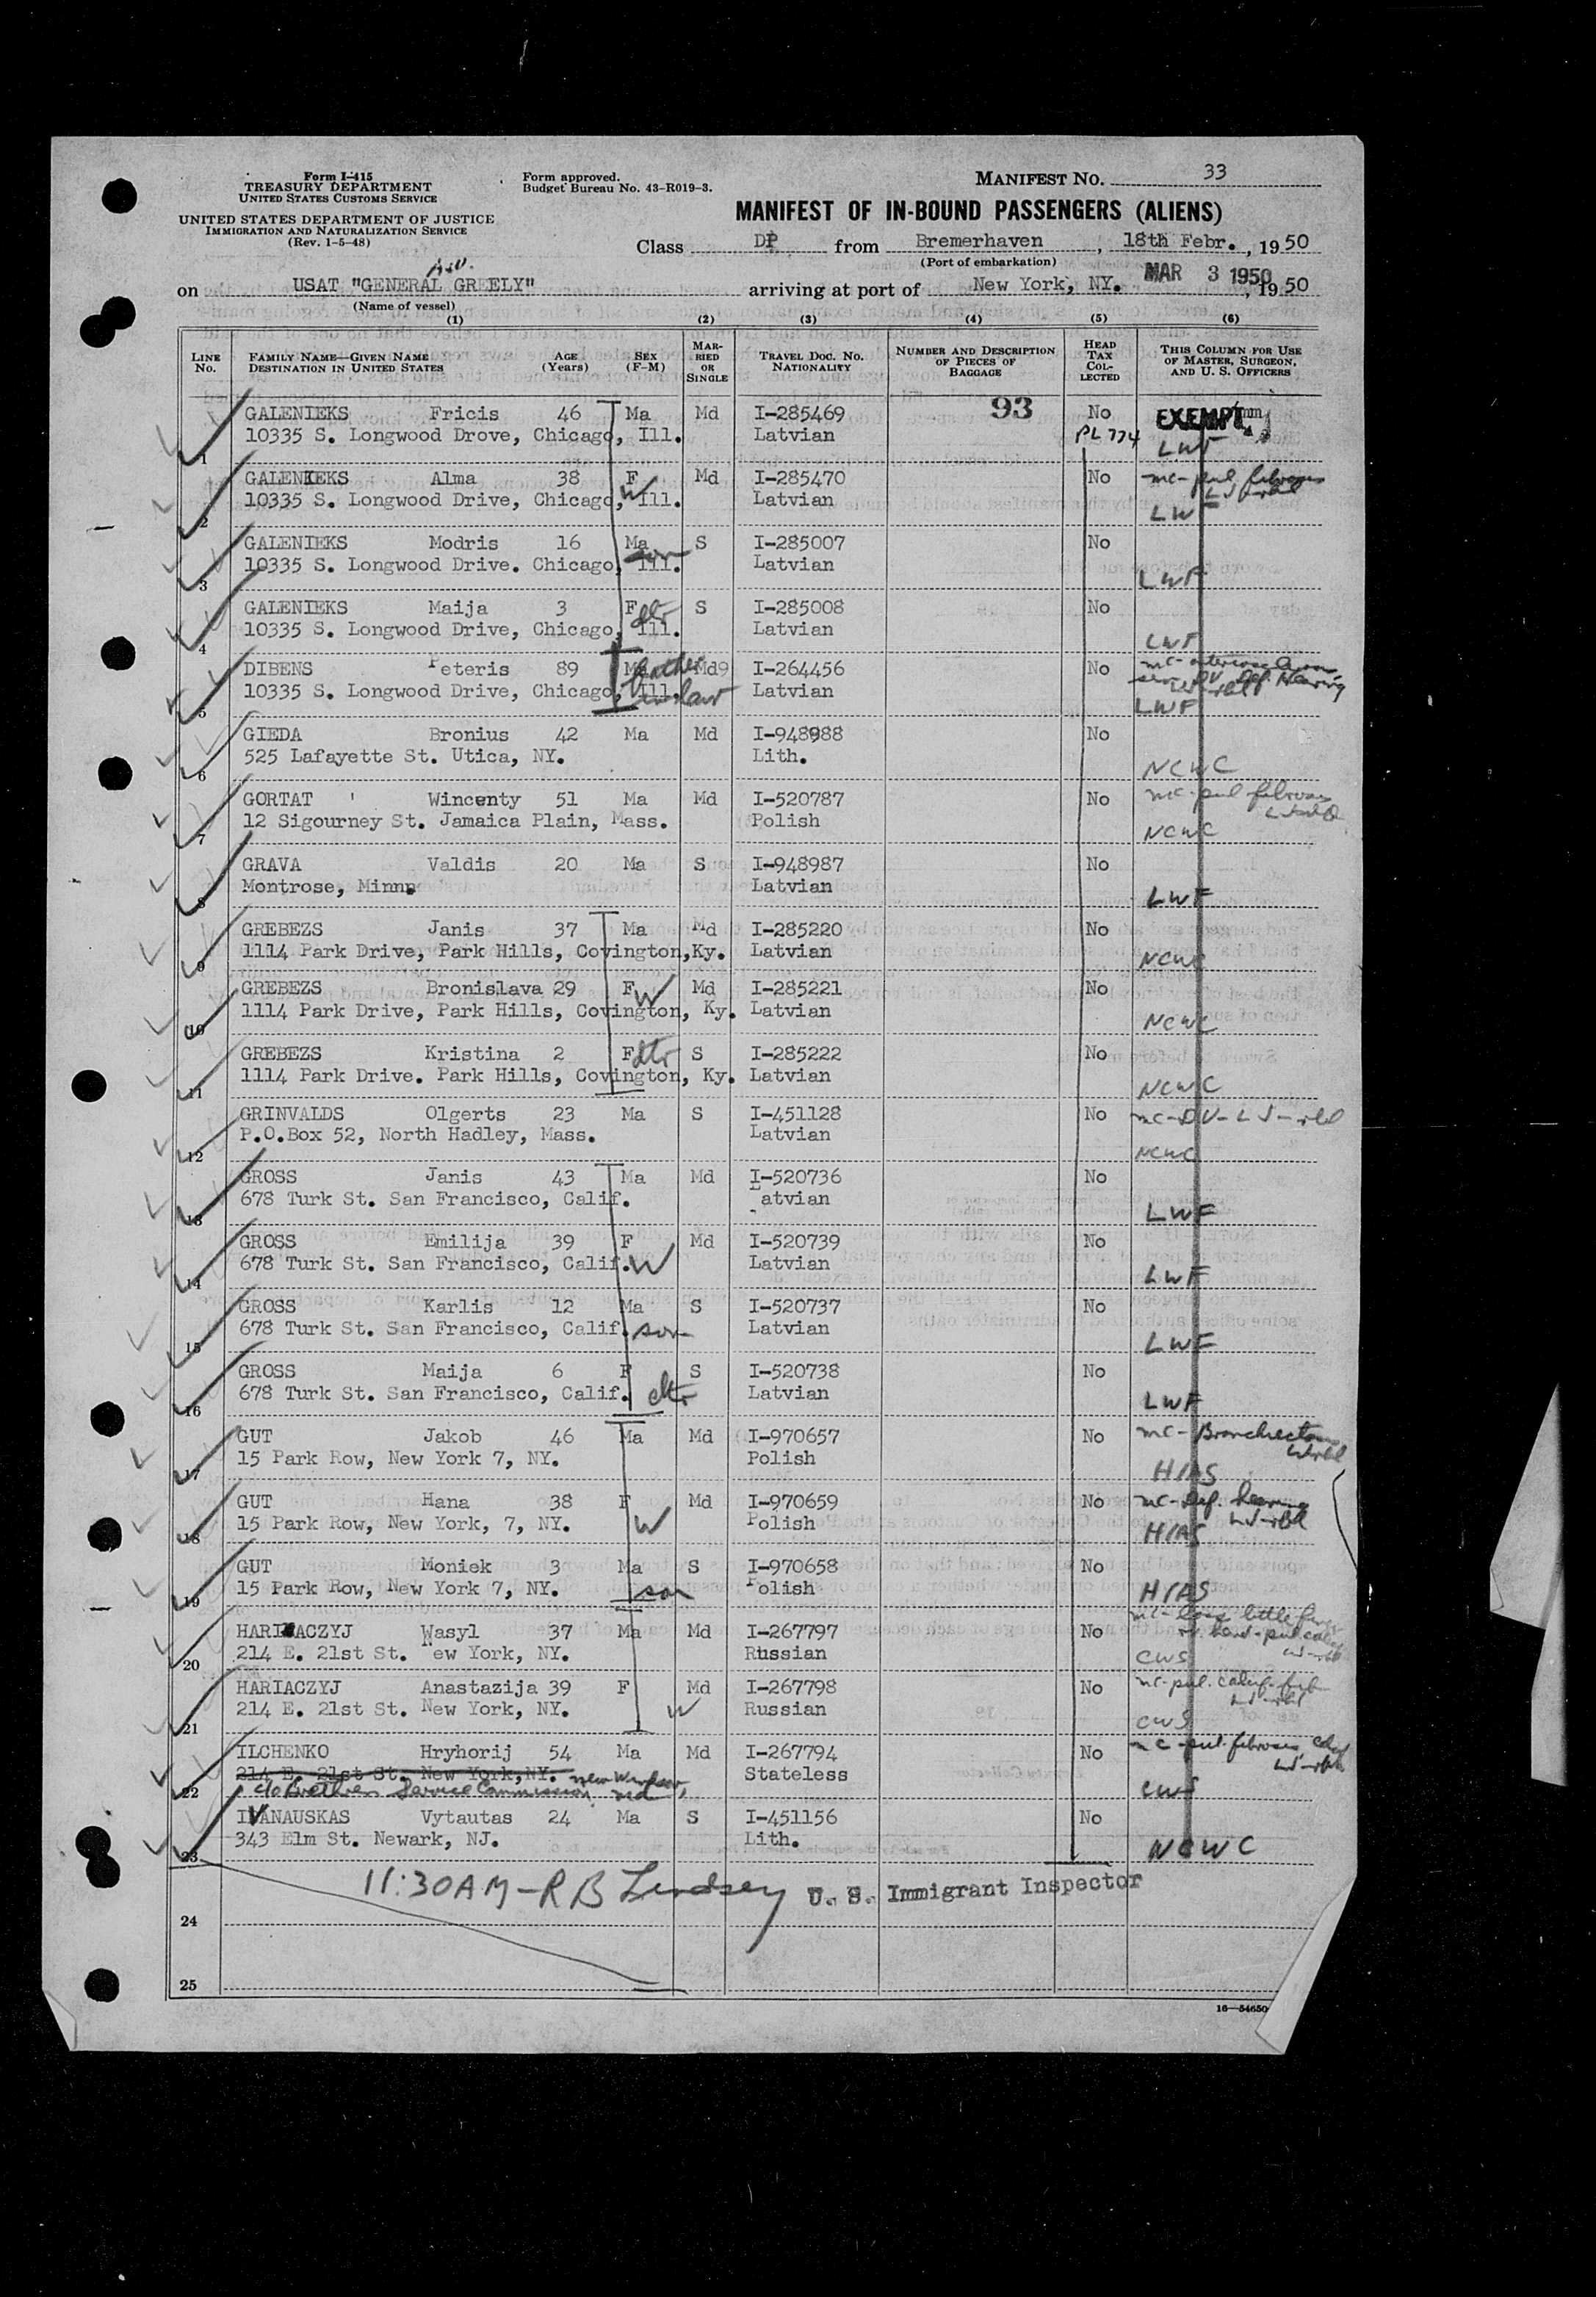 Form I-415
TREASURY DEPARTMENT
UNITED STATES CUSTOMS SERVICE
UNITED STATES DEPARTMENT OF JUSTICE
IMMIGRATION AND NATURALIZATION SERVICE
(Rev. 1-5-48)
Form approved.
Budget Bureau No. 43-R019-3.
MANIFEST NO. 33
MANIFEST OF IN-BOUND PASSENGERS (ALIENS)
Class DP from Bremerhaven, 18th Febr., 1950
(Port of embarkation)
on USAT "GENERAL GREELY" arriving at port of New York, NY. MAR 3 1950, 1950
(Name of vessel)
(1) (2) (3) (4) (5) (6)
LINE No. FAMILY NAME—GIVEN NAME DESTINATION IN UNITED STATES AGE (Years) SEX (F-M) MARRIED OR SINGLE TRAVEL DOC. NO. NATIONALITY NUMBER AND DESCRIPTION OF PIECES OF BAGGAGE HEAD TAX COLLECTED THIS COLUMN FOR USE OF MASTER, SURGEON, AND U. S. OFFICERS
GALENIEKS Fricis 46 Ma Md I-285469 93 No EXEMPT
1 10335 S. Longwood Drove, Chicago, Ill. Latvian PL 774 LWF
GALENIEKS Alma 38 F W Md I-285470 No mc-pul fibrosis
2 10335 S. Longwood Drive, Chicago, Ill. Latvian LWF
GALENIEKS Modris 16 Ma son S I-285007 No
3 10335 S. Longwood Drive. Chicago, Ill. Latvian LWF
GALENIEKS Maija 3 F dtr S I-285008 No
4 10335 S. Longwood Drive, Chicago, Ill. Latvian LWF
DIBENS Peteris 89 Ma father Md9 I-264456 No
5 10335 S. Longwood Drive, Chicago, Ill. in law Latvian Def. Hearing LWF
GIEDA Bronius 42 Ma Md I-948988 No
6 525 Lafayette St. Utica, NY. Lith. NCWC
GORTAT Wincenty 51 Ma Md I-520787 No mc-pul fibrosis
7 12 Sigourney St. Jamaica Plain, Mass. Polish NCWC
GRAVA Valdis 20 Ma S I-948987 No
8 Montrose, Minn. Latvian LWF
GREBEZS Janis 37 Ma Md I-285220 No
9 1114 Park Drive, Park Hills, Covington,Ky. Latvian NCWC
GREBEZS Bronislava 29 F W Md I-285221 No
10 1114 Park Drive, Park Hills, Covington, Ky. Latvian NCWC
GREBEZS Kristina 2 F dtr S I-285222 No
11 1114 Park Drive. Park Hills, Covington, Ky. Latvian NCWC
GRINVALDS Olgerts 23 Ma S I-451128 No mc-DV-LJ-rbl
12 P.O.Box 52, North Hadley, Mass. Latvian NCWC
GROSS Janis 43 Ma Md I-520736 No
13 678 Turk St. San Francisco, Calif. Latvian LWF
GROSS Emilija 39 F Md I-520739 No
14 678 Turk St. San Francisco, Calif. W Latvian LWF
GROSS Karlis 12 Ma S I-520737 No
15 678 Turk St. San Francisco, Calif. son Latvian LWF
GROSS Maija 6 F S I-520738 No
16 678 Turk St. San Francisco, Calif. dtr Latvian LWF
GUT Jakob 46 Ma Md I-970657 No
17 15 Park Row, New York 7, NY. Polish HIAS
GUT Hana 38 F Md I-970659 No mc-Def. hearing
18 15 Park Row, New York, 7, NY. W Polish HIAS
GUT Moniek 3 Ma S I-970658 No
19 15 Park Row, New York 7, NY. son Polish HIAS
HARIACZYJ Wasyl 37 Ma Md I-267797 No mc-loss little finger
20 214 E. 21st St. New York, NY. Russian CWS
HARIACZYJ Anastazija 39 F Md I-267798 No
21 214 E. 21st St. New York, NY. W Russian CWS
ILCHENKO Hryhorij 54 Ma Md I-267794 No mc-pul. fibrosis
214 E. 21st St. New York,NY. New Windsor, Stateless
22 c/o Brethren Service Commission Md CWS
IVANAUSKAS Vytautas 24 Ma S I-451156 No
23 343 Elm St. Newark, NJ. Lith. NCWC
11:30AM-R B Lindsey U. S. Immigrant Inspector
24
25
16—54650